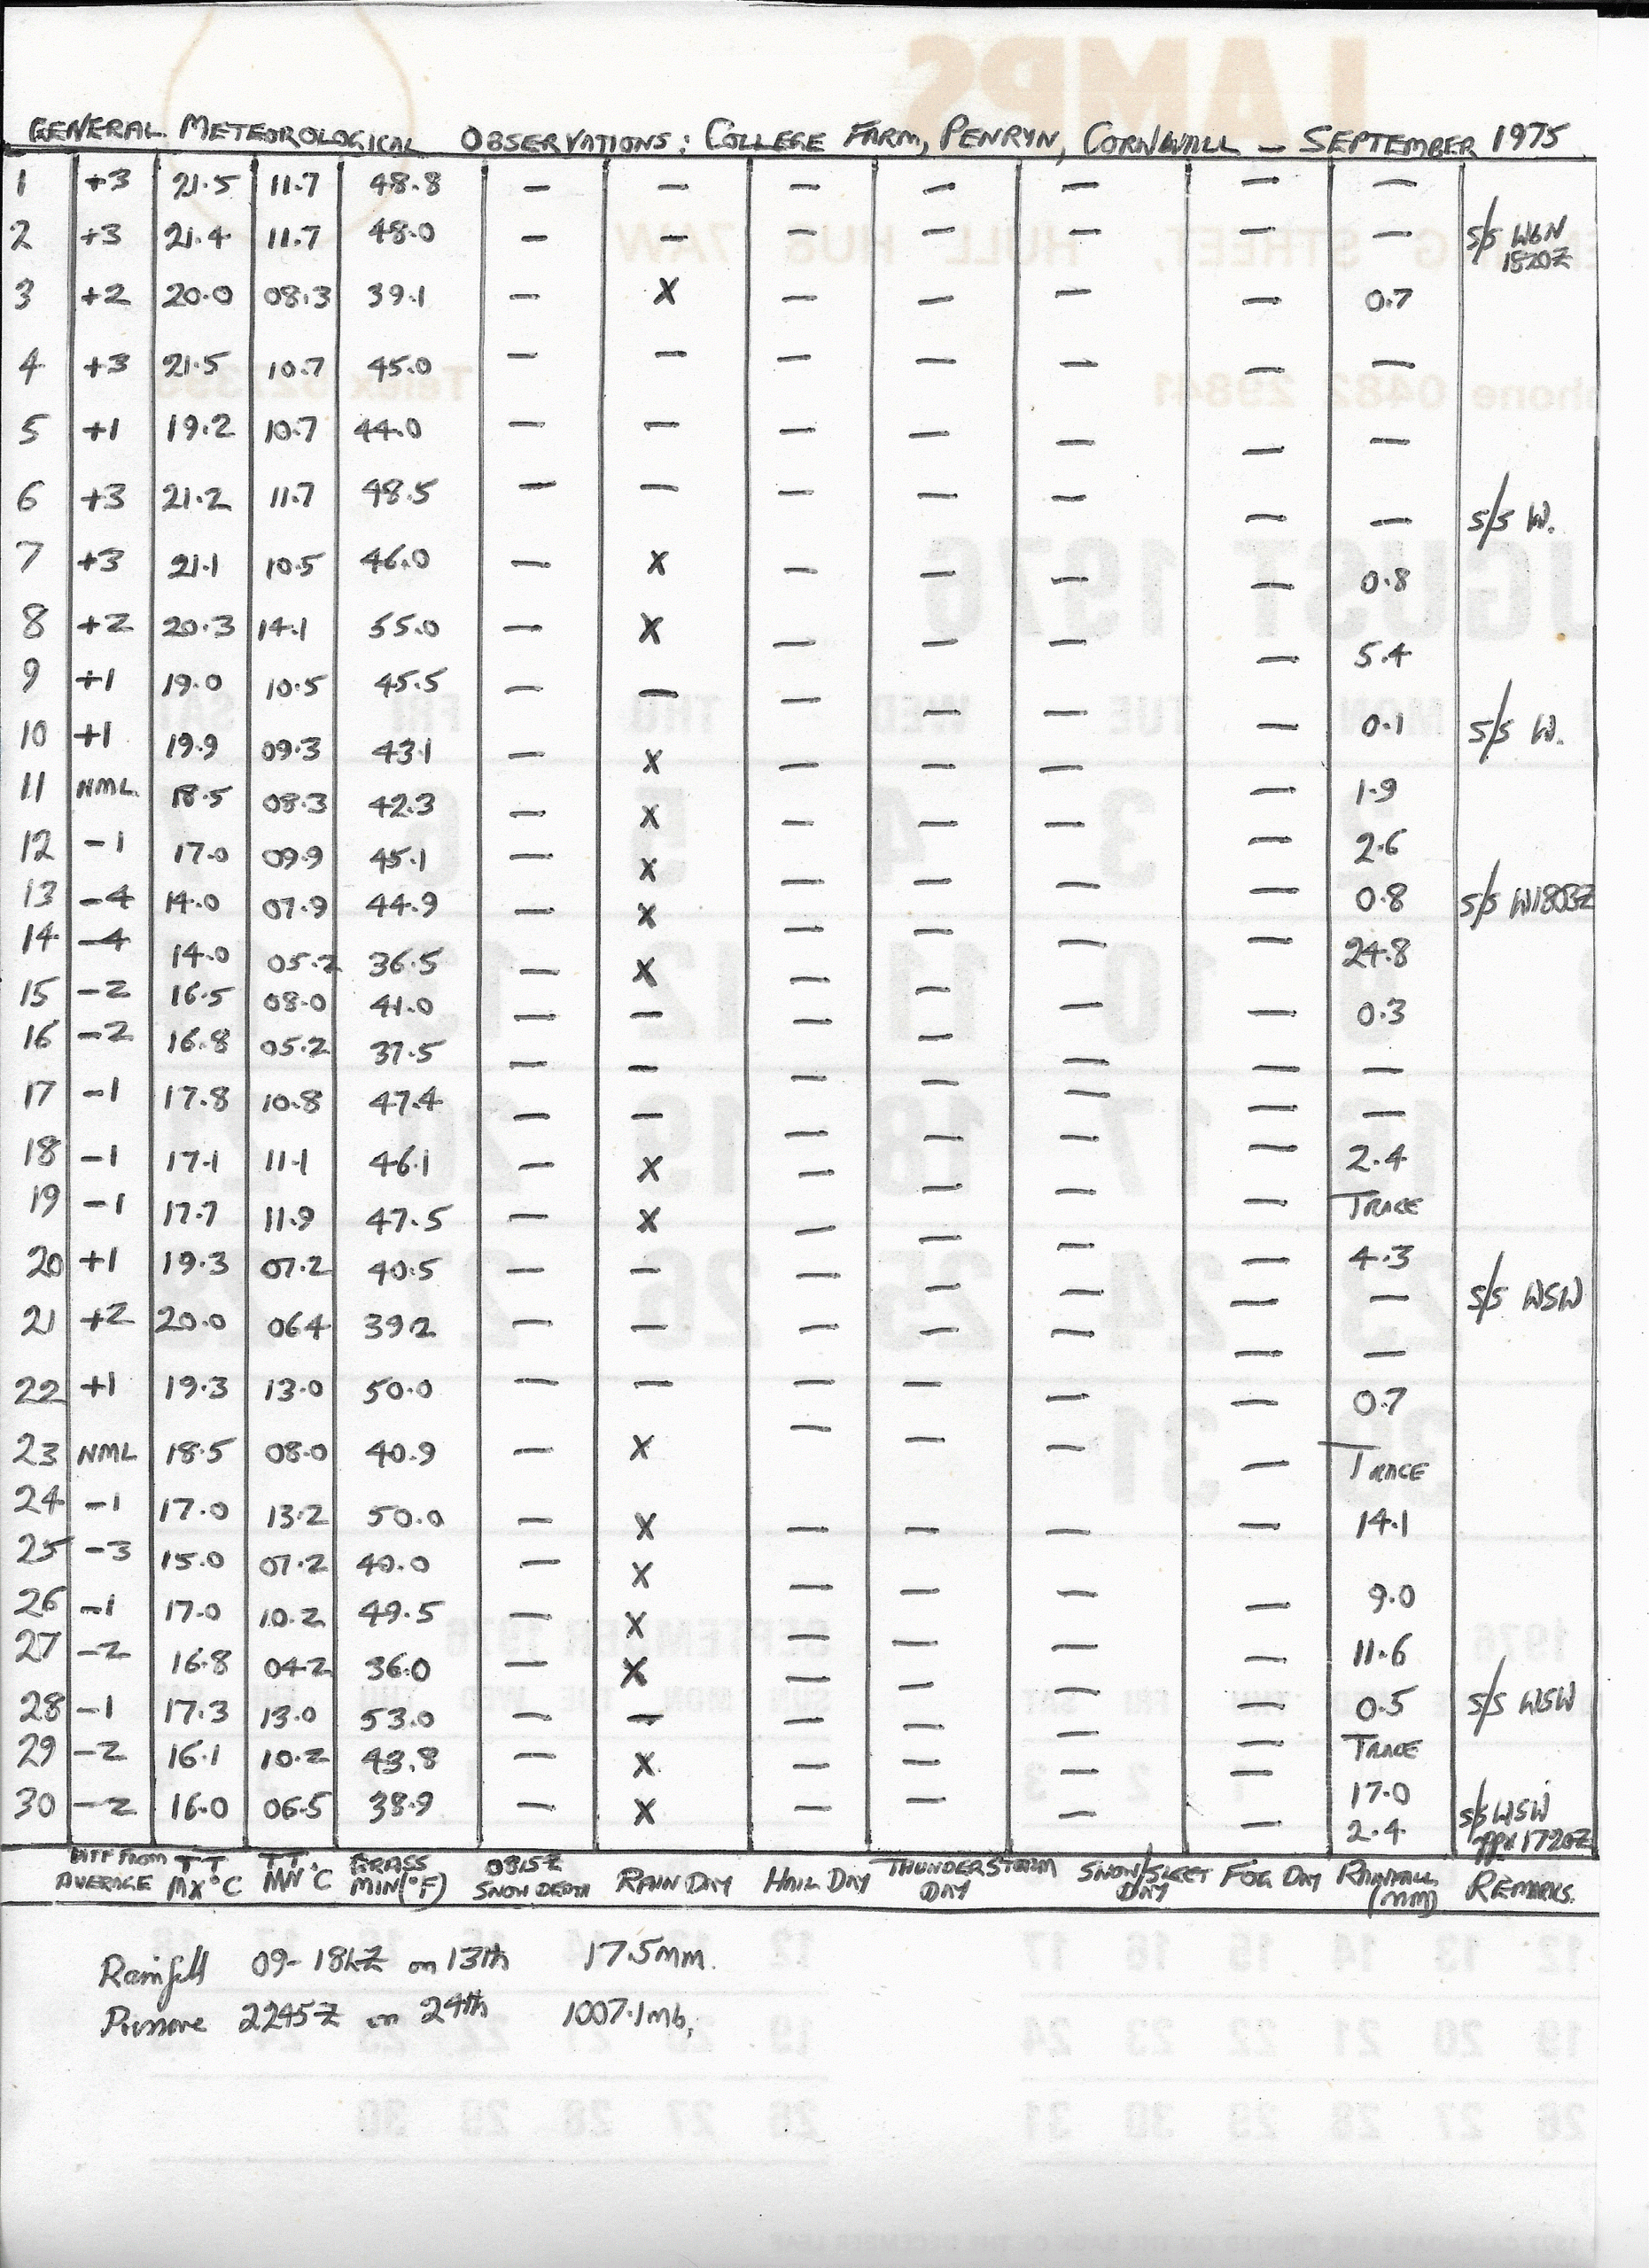 GENERAL METEOROLOGICAL OBSERVATIONS: COLLEGE FARM, PENRYN, CORNWALL — SEPTEMBER 1975
1 +3 21.5 11.7 48.8 — — — — — — —
2 +3 21.4 11.7 48.0 — — — — — — — S/S WbN 1820Z
3 +2 20.0 08.3 39.1 — X — — — — 0.7
4 +3 21.5 10.7 45.0 — — — — — — —
5 +1 19.2 10.7 44.0 — — — — — — —
6 +3 21.2 11.7 48.5 — — — — — — — S/S W.
7 +3 21.1 10.5 46.0 — X — — — — 0.8
8 +2 20.3 14.1 55.0 — X — — — — 5.4
9 +1 19.0 10.5 45.5 — — — — — — 0.1 S/S W.
10 +1 19.9 09.3 43.1 — X — — — — 1.9
11 NML. 18.5 08.3 42.3 — X — — — — 2.6
12 -1 17.0 09.9 45.1 — X — — — — 0.8
13 -4 14.0 07.9 44.9 — X — — — — 24.8 S/S W1803Z
14 -4 14.0 05.2 36.5 — X — — — — 0.3
15 -2 16.5 08.0 41.0 — — — — — — —
16 -2 16.8 05.2 37.5 — — — — — — —
17 -1 17.8 10.8 47.4 — — — — — — 2.4
18 -1 17.1 11.1 46.1 — X — — — — TRACE
19 -1 17.7 11.9 47.5 — X — — — — 4.3
20 +1 19.3 07.2 40.5 — — — — — — — S/S WSW
21 +2 20.0 06.4 39.2 — — — — — — —
22 +1 19.3 13.0 50.0 — — — — — — 0.7
23 NML 18.5 08.0 40.9 — X — — — — TRACE
24 -1 17.0 13.2 50.0 — X — — — — 14.1
25 -3 15.0 07.2 40.0 — X — — — — 9.0
26 -1 17.0 10.2 49.5 — X — — — — 11.6
27 -2 16.8 04.2 36.0 — X — — — — 0.5
28 -1 17.3 13.0 53.0 — — — — — — TRACE S/S WSW
29 -2 16.1 10.2 43.8 — X — — — — 17.0
30 -2 16.0 06.5 38.9 — X — — — — 2.4 S/S WSW 1720Z
DIFF FROM AVERAGE TT MX °C TT. MN °C GRASS MIN(°F) 0815Z SNOW DEPTH RAIN DAY HAIL DAY THUNDERSTORM DAY SNOW/SLEET DAY FOG DAY RAINFALL (MM) REMARKS.
Rainfall 09-18hZ on 13th 17.5mm.
Pressure 2245Z on 24th 1007.1mb.